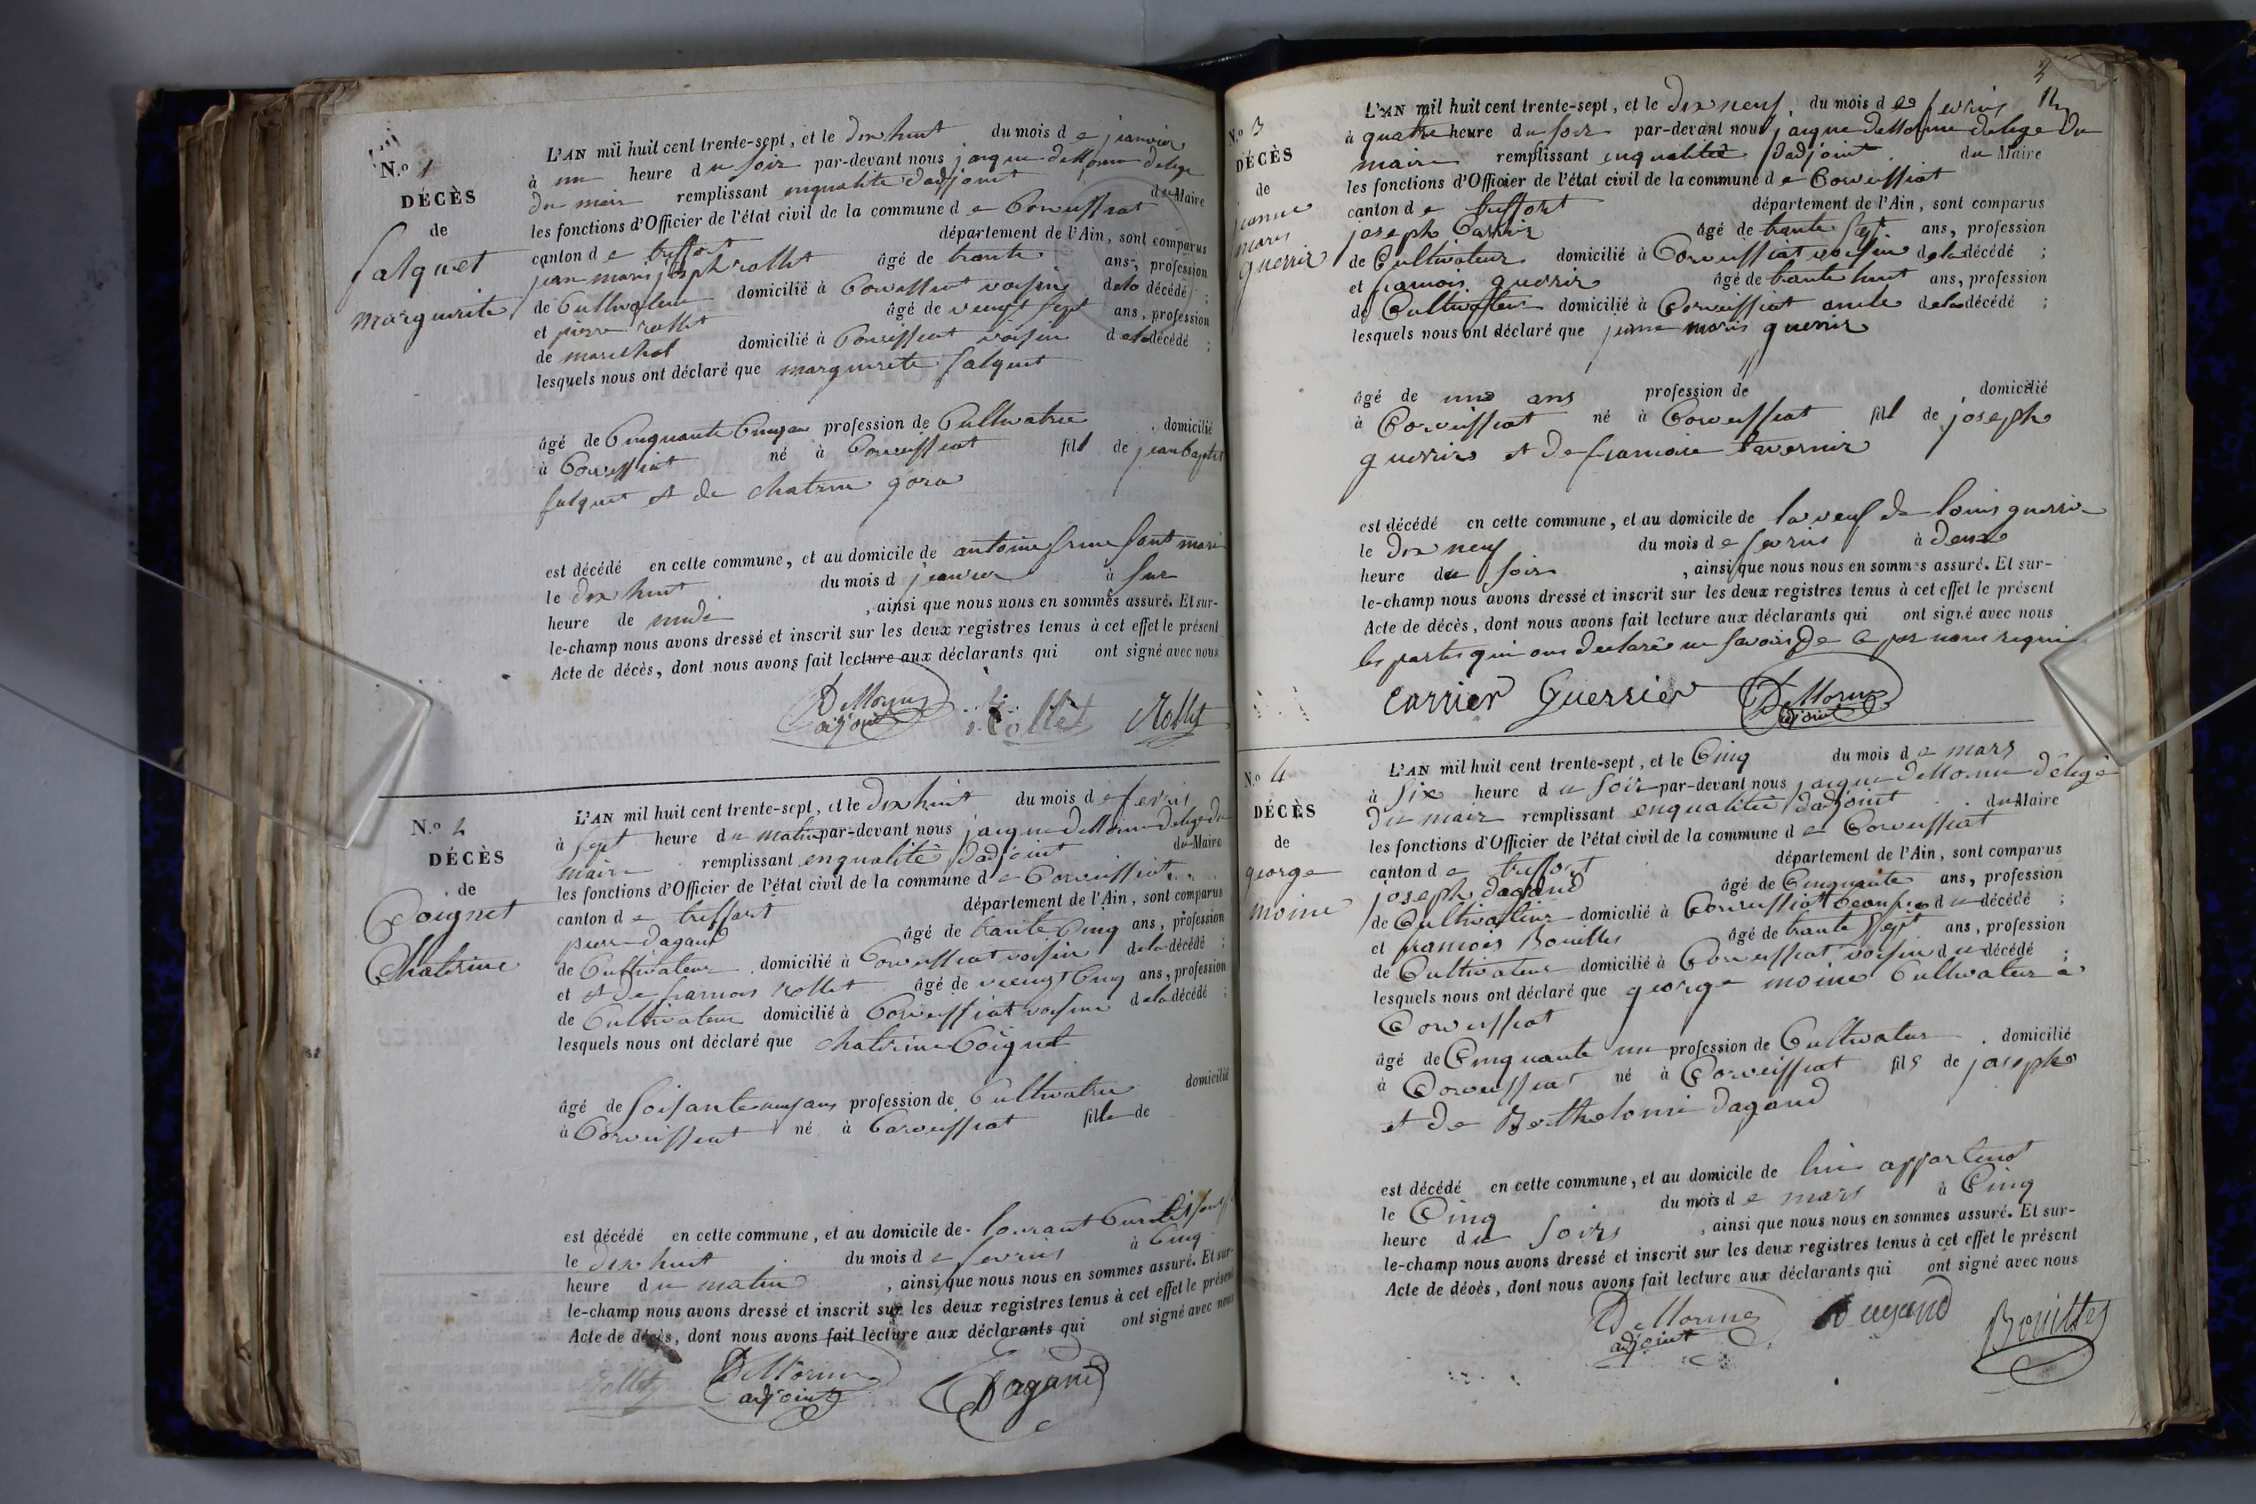 N.o 1
DÉCÈS
de
falquet
marguerite
L'AN mil huit cent trente-sept, et le dix huit du mois de janvier
à une heure du soir par-devant nous jaique dellorme delege
du mair remplissant enqualité dadjoint du Maire
les fonctions d'Officier de l'état civil de la commune de Corveissiat
canton de treffort département de l'Ain, sont comparus
jean marie joseph rollet âgé de trante ans, profession
de Cultivateur domicilié à Corveissiat voisin dela décédé ;
et pierre rollet âgé de veingt sept ans, profession
de marechal domicilié à Corveissiat voisin dela décédé ;
lesquels nous ont déclaré que marguerite falquet
âgé de Cinquante Cinq an profession de Cultivatrice domicilié
à Corveissiat né à Corveissiat fill de jean baptis
falquet et de chatrine gora
est décédé en cette commune, et au domicile de antoine
le dix huit du mois d janvier à
heure de midi , ainsi que nous nous en sommes assuré. Et sur-
le-champ nous avons dressé et inscrit sur les deux registres tenus à cet effet le présent
Acte de décès, dont nous avons fait lecture aux déclarants qui ont signé avec nous
Dellorme adjoint Rollet Rollet
N.o 2
DÉCÈS
de
Coignet
Chatrine
L'AN mil huit cent trente-sept, et le dix huit du mois de fevrié
à sept heure du matin par-devant nous jaique dellorme delege du
maire remplissant enqualité dadjoint du Maire
les fonctions d'Officier de l'état civil de la commune de Corveissiat
canton de treffort département de l'Ain, sont comparus
pierre dagand âgé de trante Cinq ans, profession
de Cultivateur domicilié à Corveissiat voisin dela décédé ;
et et de framois rollet âgé de veingt Cinq ans, profession
de Cultivateur domicilié à Corveissiat voisin dela décédé ;
lesquels nous ont déclaré que chatrine Coignet
âgé de soisante ans profession de Cultivatrice domicilié
à Corveissiat né à Corveissiat fille de
est décédé en cette commune, et au domicile de lourant
le dix huit du mois de fevrié à Cinq
heure du matin , ainsi que nous nous en sommes assuré. Et sur-
le-champ nous avons dressé et inscrit sur les deux registres tenus à cet effet le présent
Acte de décès, dont nous avons fait lecture aux déclarants qui ont signé avec nous
Rollet Dellorme adjoint Dagand
3
N.o 3
DÉCÈS
de
jeanne
marie
guerrir
L'AN mil huit cent trente-sept, et le dix neuf du mois de fevrié
à quatre heure du soir par-devant nous jaique dellorme delege du
maire remplissant enqualité dadjoint du Maire
les fonctions d'Officier de l'état civil de la commune de Corveissiat
canton de treffort département de l'Ain, sont comparus
joseph Carrir âgé de trante sept ans, profession
de Cultivateur domicilié à Corveissiat voisin dela décédé ;
et framois guerrir âgé de trante huit ans, profession
de Cultivateur domicilié à Corveissiat oncle dela décédé ;
lesquels nous ont déclaré que jeanne marie guerrir
âgé de une ans profession de domicilié
à Corveissiat né à Corveissiat fill de joseph
guerrir et de framoise tavernir
est décédé en cette commune, et au domicile de la veuf de louis guerrir
le dix neuf du mois de fevrié à deux
heure du soir , ainsi que nous nous en sommes assuré. Et sur-
le-champ nous avons dressé et inscrit sur les deux registres tenus à cet effet le présent
Acte de décès, dont nous avons fait lecture aux déclarants qui ont signé avec nous
les partis qui ons declaré ne savoir de ce par nous requi
Carrier Guerrier Dellorme adjoint
N.o 4
DÉCÈS
de
george
moine
L'AN mil huit cent trente-sept, et le Cinq du mois de mars
à six heure du soir par-devant nous jaique dellorme délegé
du mair remplissant enqualité dadjoint du Maire
les fonctions d'Officier de l'état civil de la commune de Corveissiat
canton de treffort département de l'Ain, sont comparus
joseph dagand âgé de Cinquante ans, profession
de Cultivateur domicilié à Corveissiat beaufrer du décédé ;
et framois Bouilles âgé de trante sept ans, profession
de Cultivateur domicilié à Corveissiat voisin du décédé ;
lesquels nous ont déclaré que george moine Cultivateur a
Corveissiat
âgé de Cinquante un profession de Cultivateur domicilié
à Corveissiat né à Corveissiat fils de joseph
et de Berthelomie dagand
est décédé en cette commune, et au domicile de lui appartenet
le Cinq du mois de mars à Cinq
heure du soirs , ainsi que nous nous en sommes assuré. Et sur-
le-champ nous avons dressé et inscrit sur les deux registres tenus à cet effet le présent
Acte de décès, dont nous avons fait lecture aux déclarants qui ont signé avec nous
Dellorme adjoint Dagand Bouilles